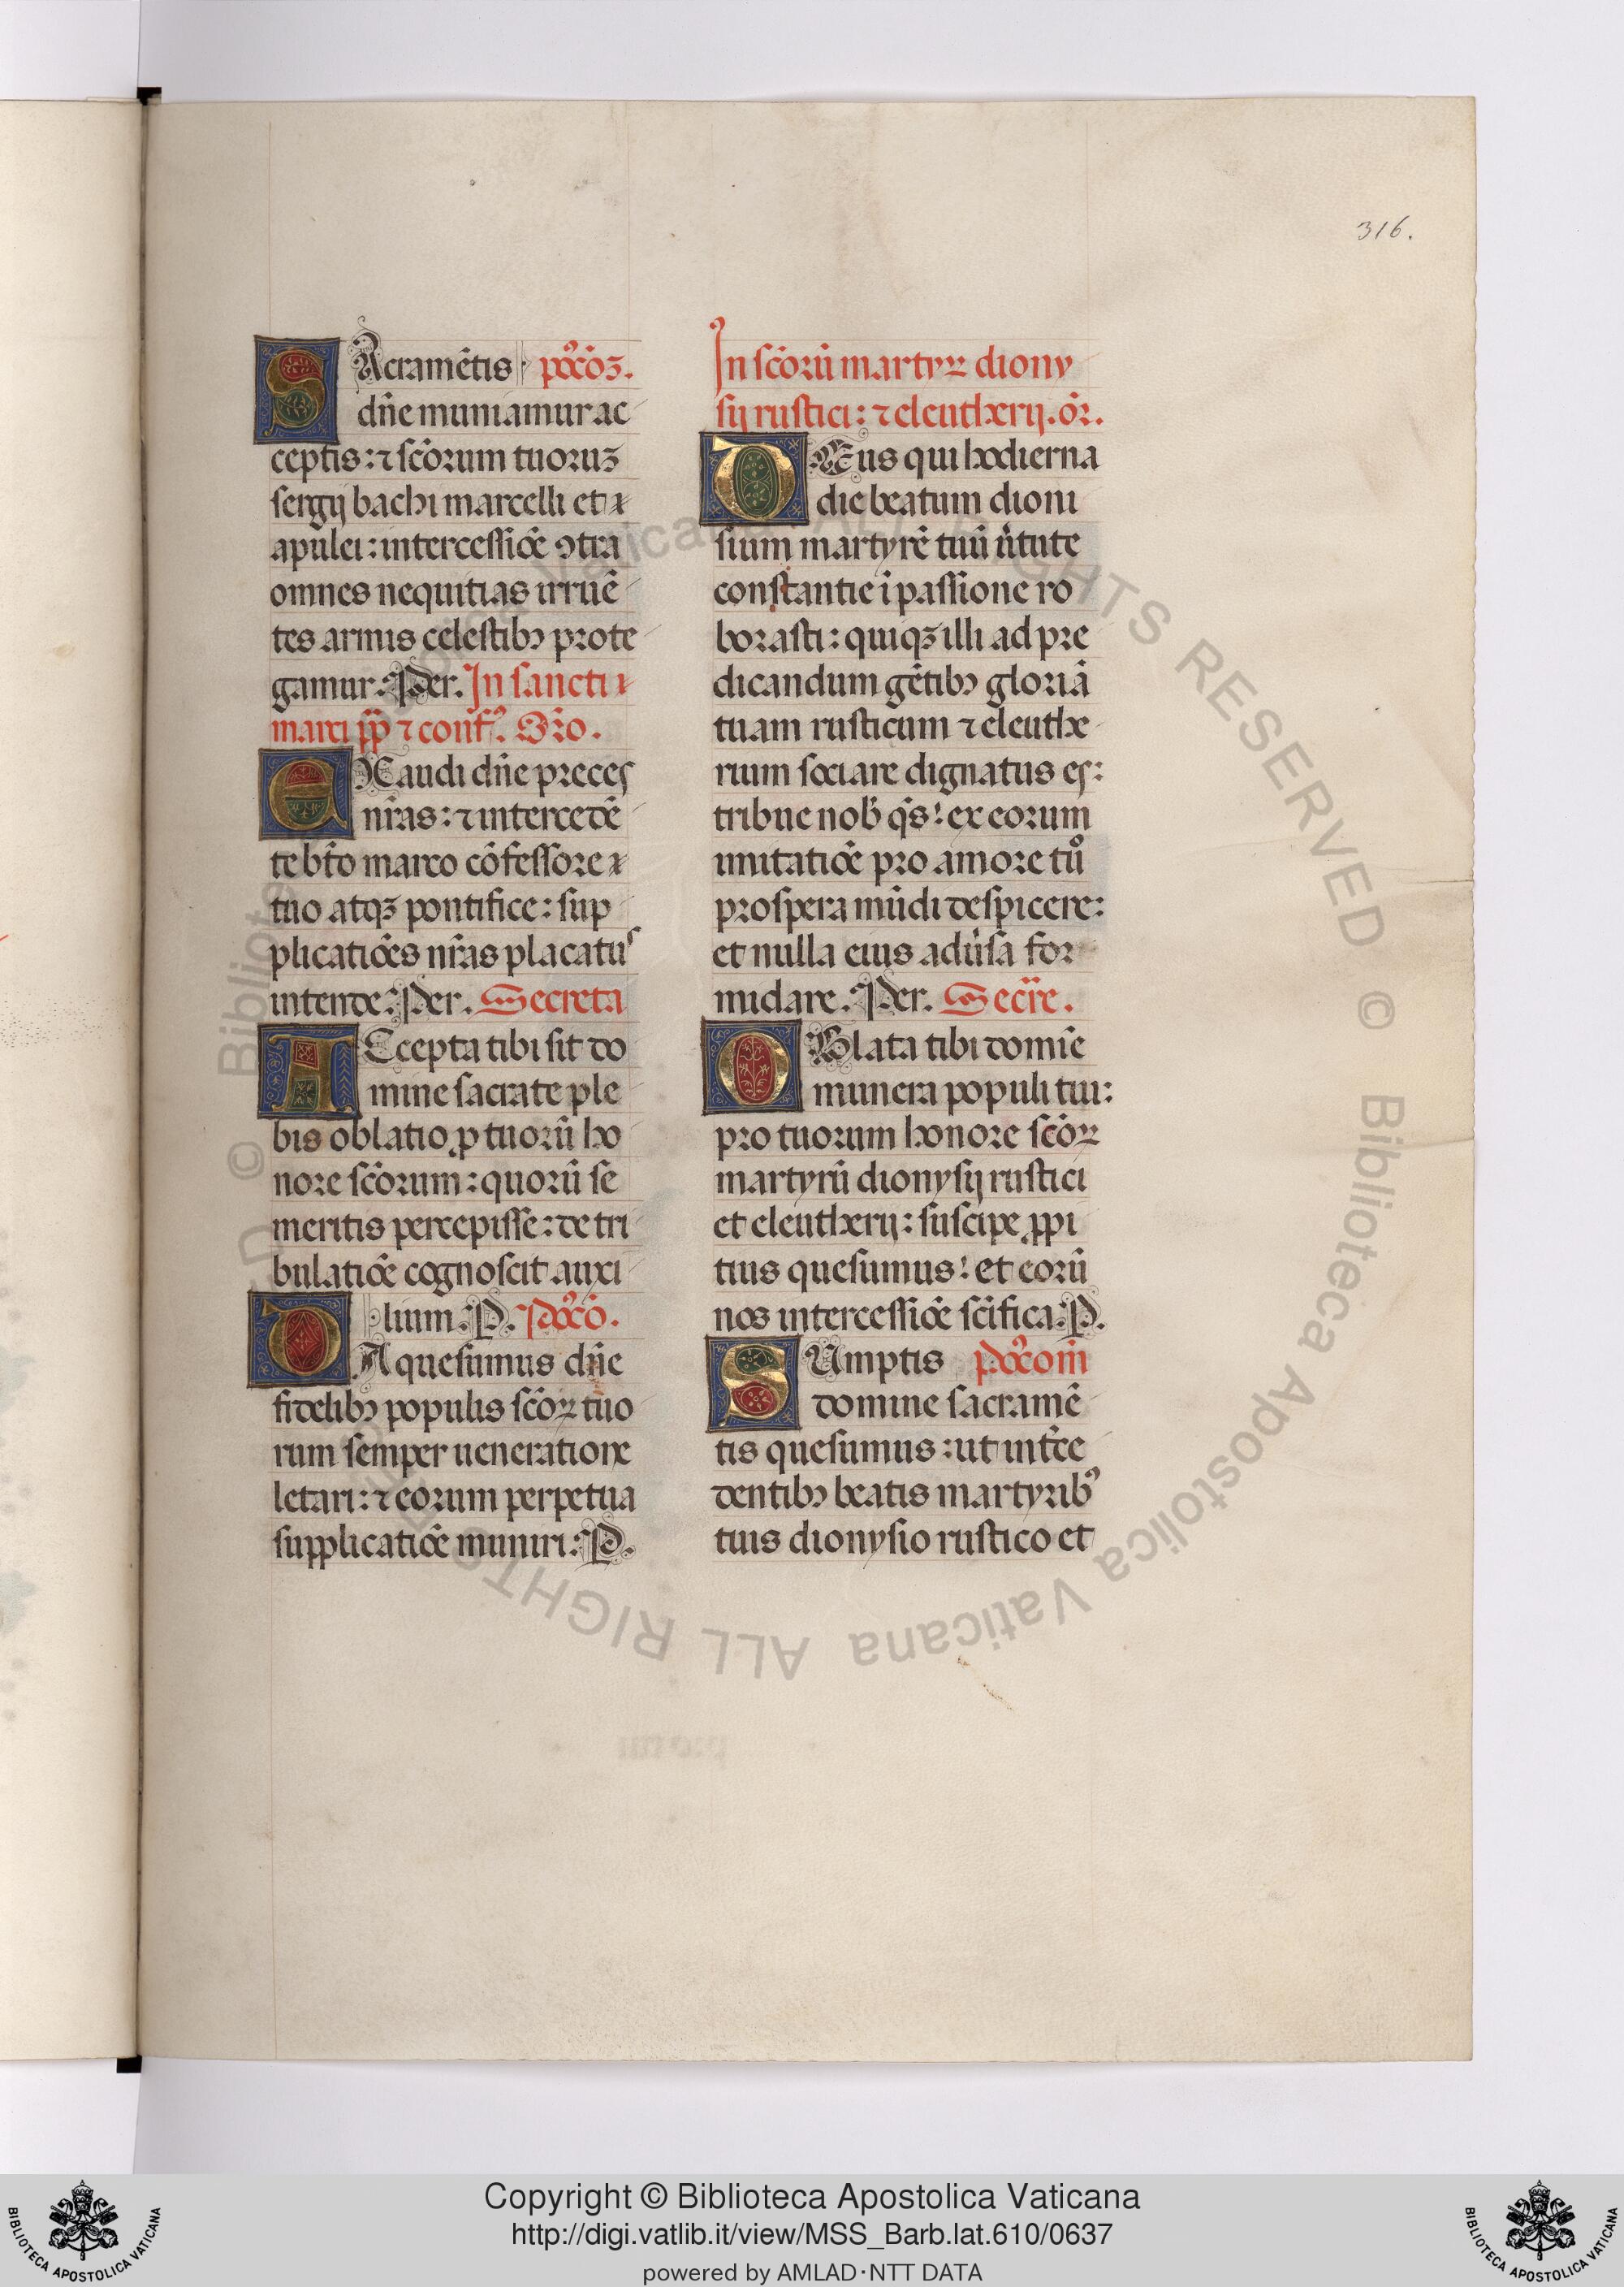 316.
SAcramẽtis pꝰcõꝫ.
dñe muniamur ac
ceptis: ⁊ scõrum tuoruꝫ
sergij bachi marcelli et
apulei: intercessiõe ꝯtra
omnes nequitias irruẽ
tes armis celestibꝫ prote
gamur. Per. In sancti
marci pp̃ ⁊ conf̃. Orõ.
EXaudi dñe preces
nr̃as: ⁊ intercedẽ
te bt̃o marco cõfessore
tuo atqꝫ pontifice: sup
plicatiões nr̃as placatus
intende. Per. Secreta
ACcepta tibi sit do
mine sacrate ple
bis oblatio ꝓ tuorũ ho
nore scõrum: quorũ se
meritis percepisse: de tri
bulatiõe cognoscit auxi
lium. P. Pꝰcõ.
DA quesumus dñe
fidelibꝫ populis scõꝝ tuo
rum semper ueneratione
letari: ⁊ eorum perpetua
supplicatiõe muniri. P.
In scõrũ martyꝝ diony
sij rustici: ⁊ eleutherij. or̃.
DEus qui hodierna
die beatum dioni
sium martyrẽ tuũ u̾tute
constantie ĩ passione ro
borasti: quiqꝫ illi ad pre
dicandum gẽtibꝫ gloriã
tuam rusticum ⁊ eleuthe
rium sociare dignatus es:
tribue nob̃ q̃s: ex eorum
imitatiõe pro amore tuo
prospera mũdi despicere:
et nulla eius adu̾sa for
midare. Per. Secr̃e.
OBlata tibi domĩe
munera populi tui:
pro tuorum honore scõꝝ
martyrũ dionysij rustici
et eleutherij: suscipe ꝓpi
tius quesumus: et eorũ
nos intercessiõe scĩfica. P.
SUmptis Pꝰcom̃
domine sacramẽ
tis quesumus: ut int̾ce
dentibꝫ beatis martyribꝰ
tuis dionysio rustico et
Copyright © Biblioteca Apostolica Vaticana
http://digi.vatlib.it/view/MSS_Barb.lat.610/0637
powered by AMLAD·NTT DATA